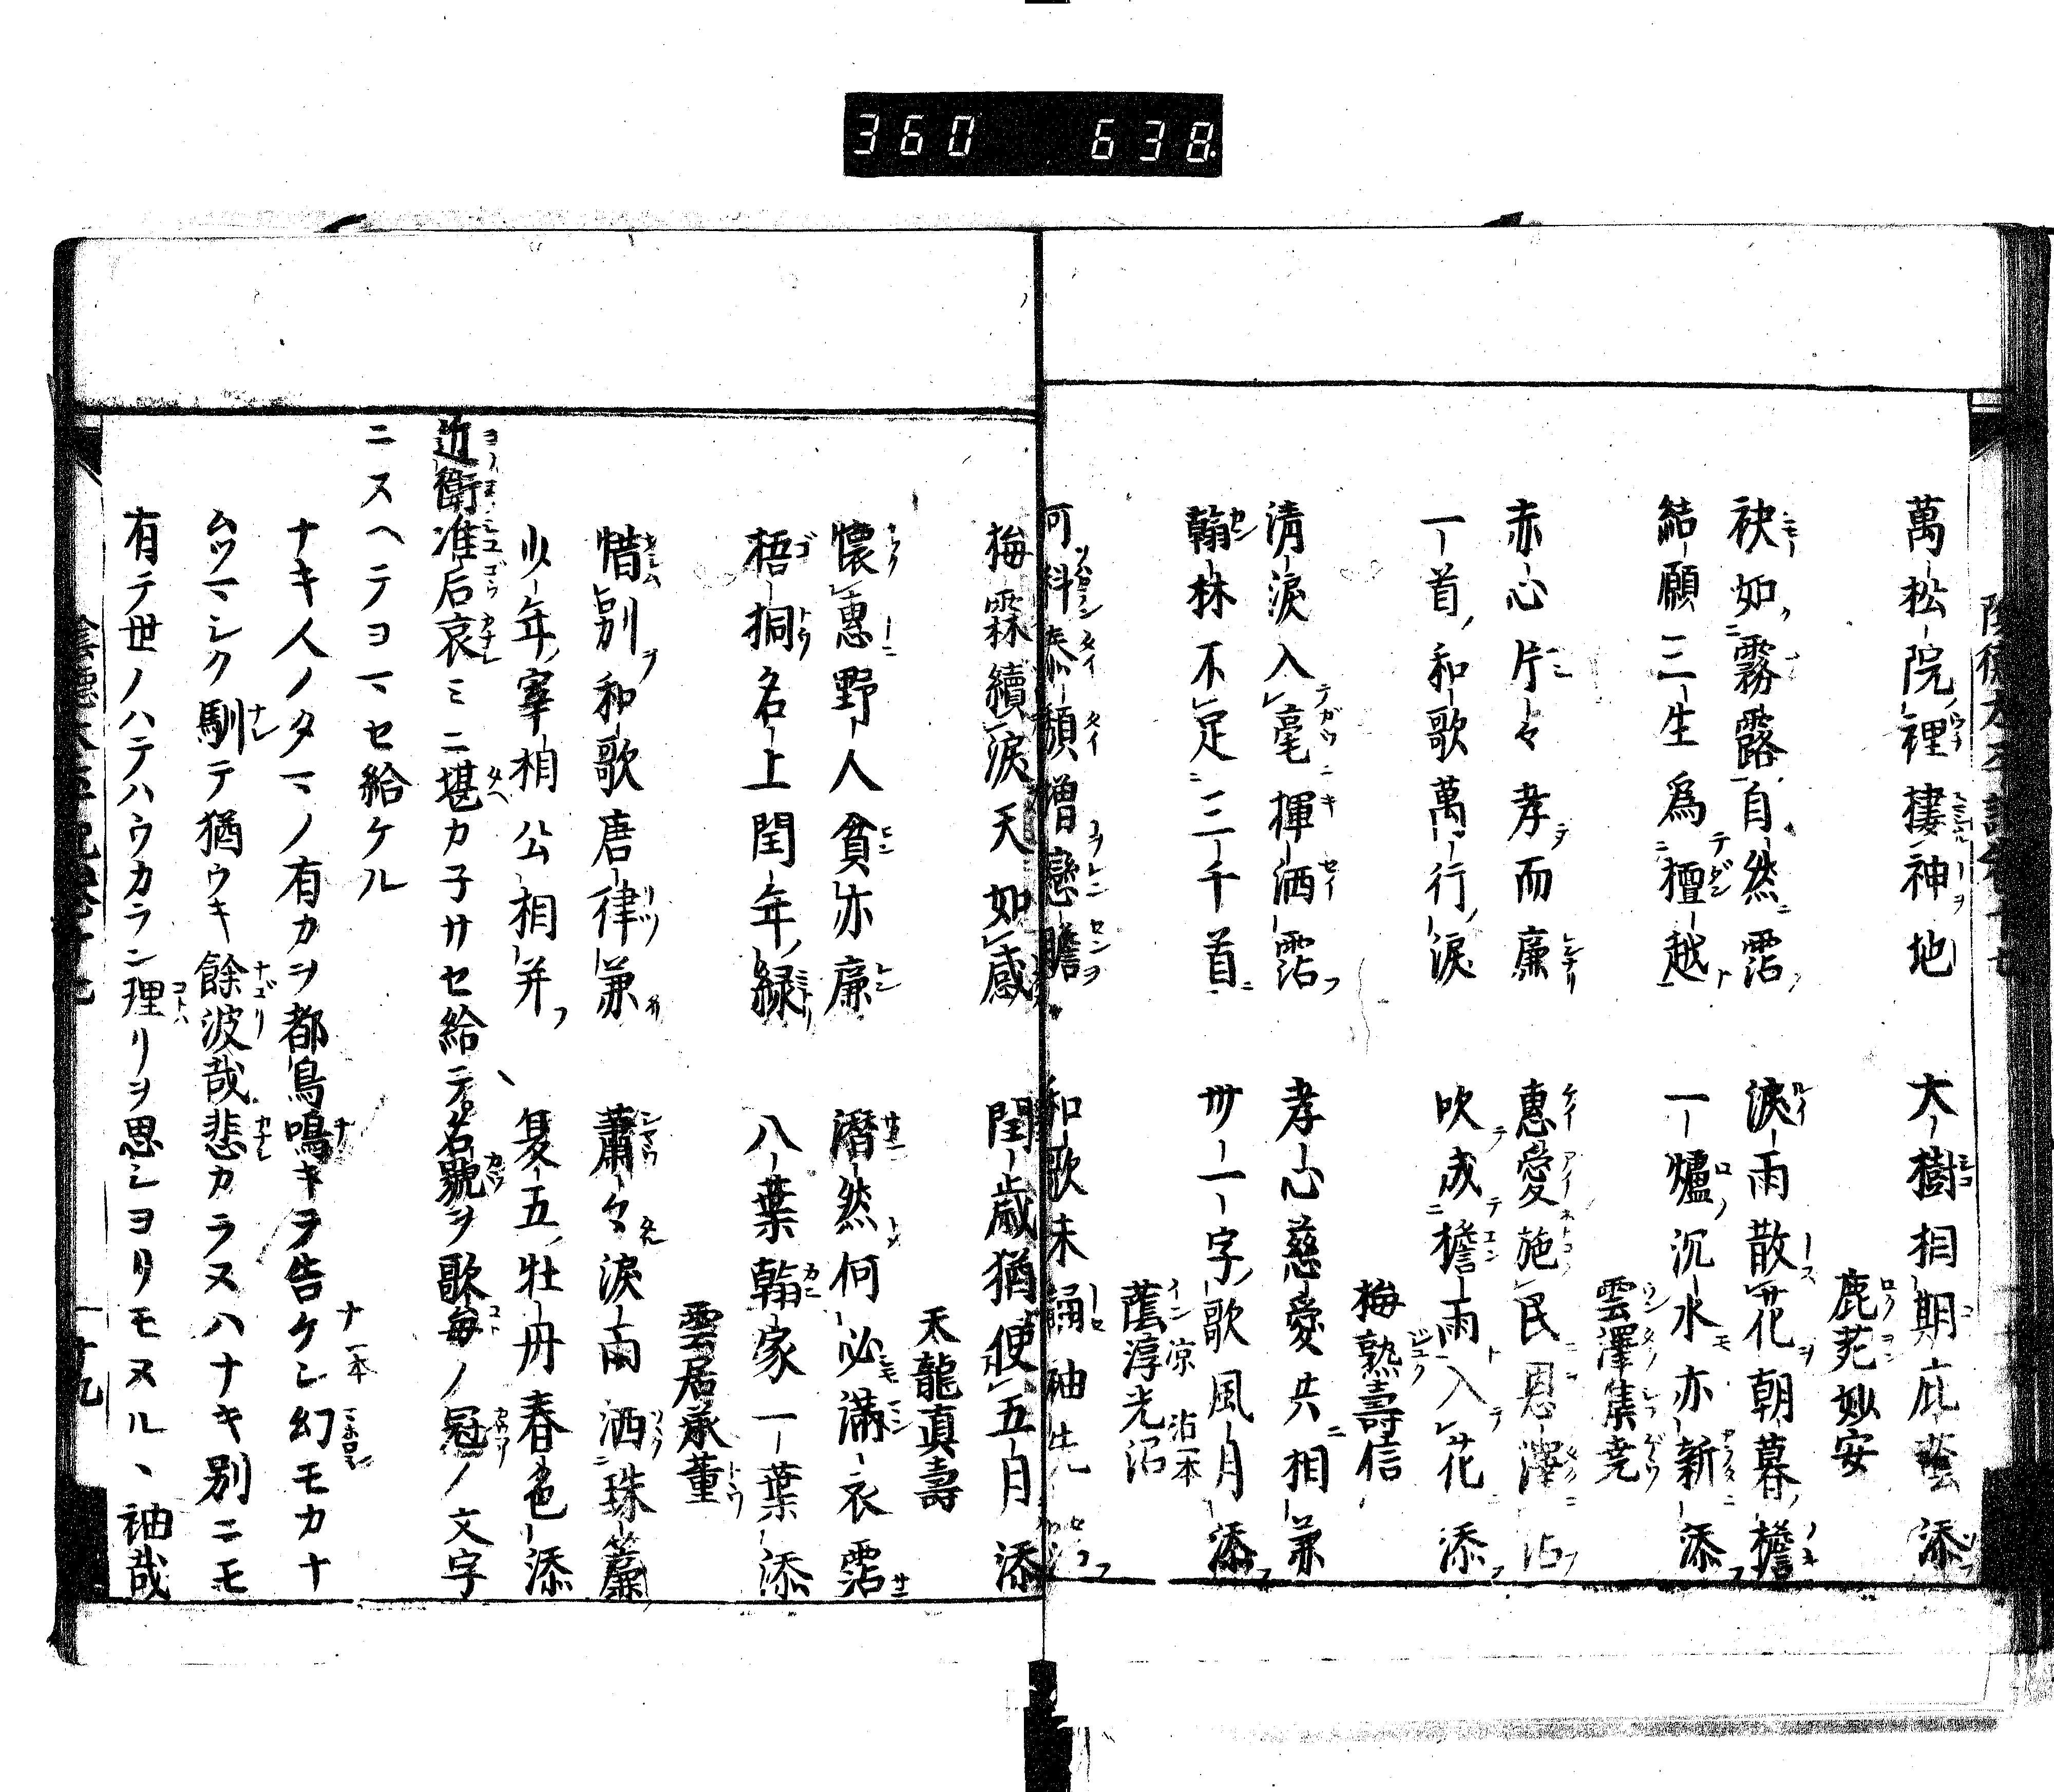 360 638
萬松院裡棲神地 大樹相期庇蔭添
鹿苑妙安
袂如霧露自然霑 淚雨散花朝暮檐
結願三生爲檀越 一爐沉水亦新添
雲澤集堯
赤心片々孝而廉 惠愛施民恩澤沾
一首和歌萬行淚 吹成檐雨入花添
梅熟壽信
清淚入毫揮洒霑 孝心慈愛共相兼
翰林不足三千首 卅一字歌風月添
蔭凉淳光沼
何料衰頽僧戀瞻 和歌未誦袖先沾
梅霖續淚天如感 閏歳猶便五月添
天龍真壽
懷惠野人貧亦廉 潛然何必滿衣霑
梧桐名上閏年緑 八葉翰家一葉添
雲居承董
惜別和歌唐律兼 蕭々淚雨洒珠簾
少年宰相公相并 夏五牡丹春色添
近衛准后哀ミニ堪カ子サセ給テ名號ヲ歌毎ノ冠ノ文字
ニスヘテヨマセ給ケル
ナキ人ノタマノ有カヲ都鳥鳴キヲ告ケシ幻モカナ
ムツマシク馴テ猶ウキ餘波哉悲カラヌハナキ別ニモ
有テ世ノハテハウカラン理リヲ思シヨリモヌルヽ袖哉